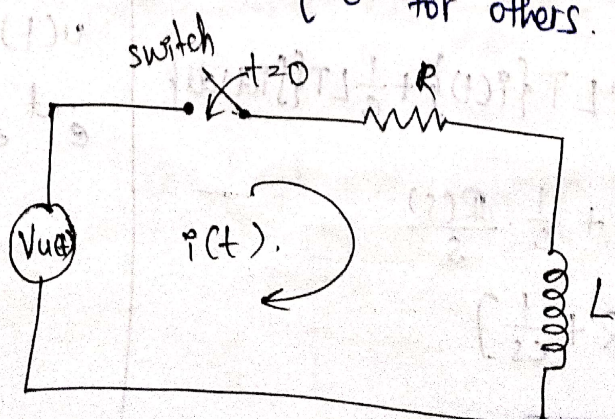 for others.
switch
t=0
R
Vu(t)
i(t).
L